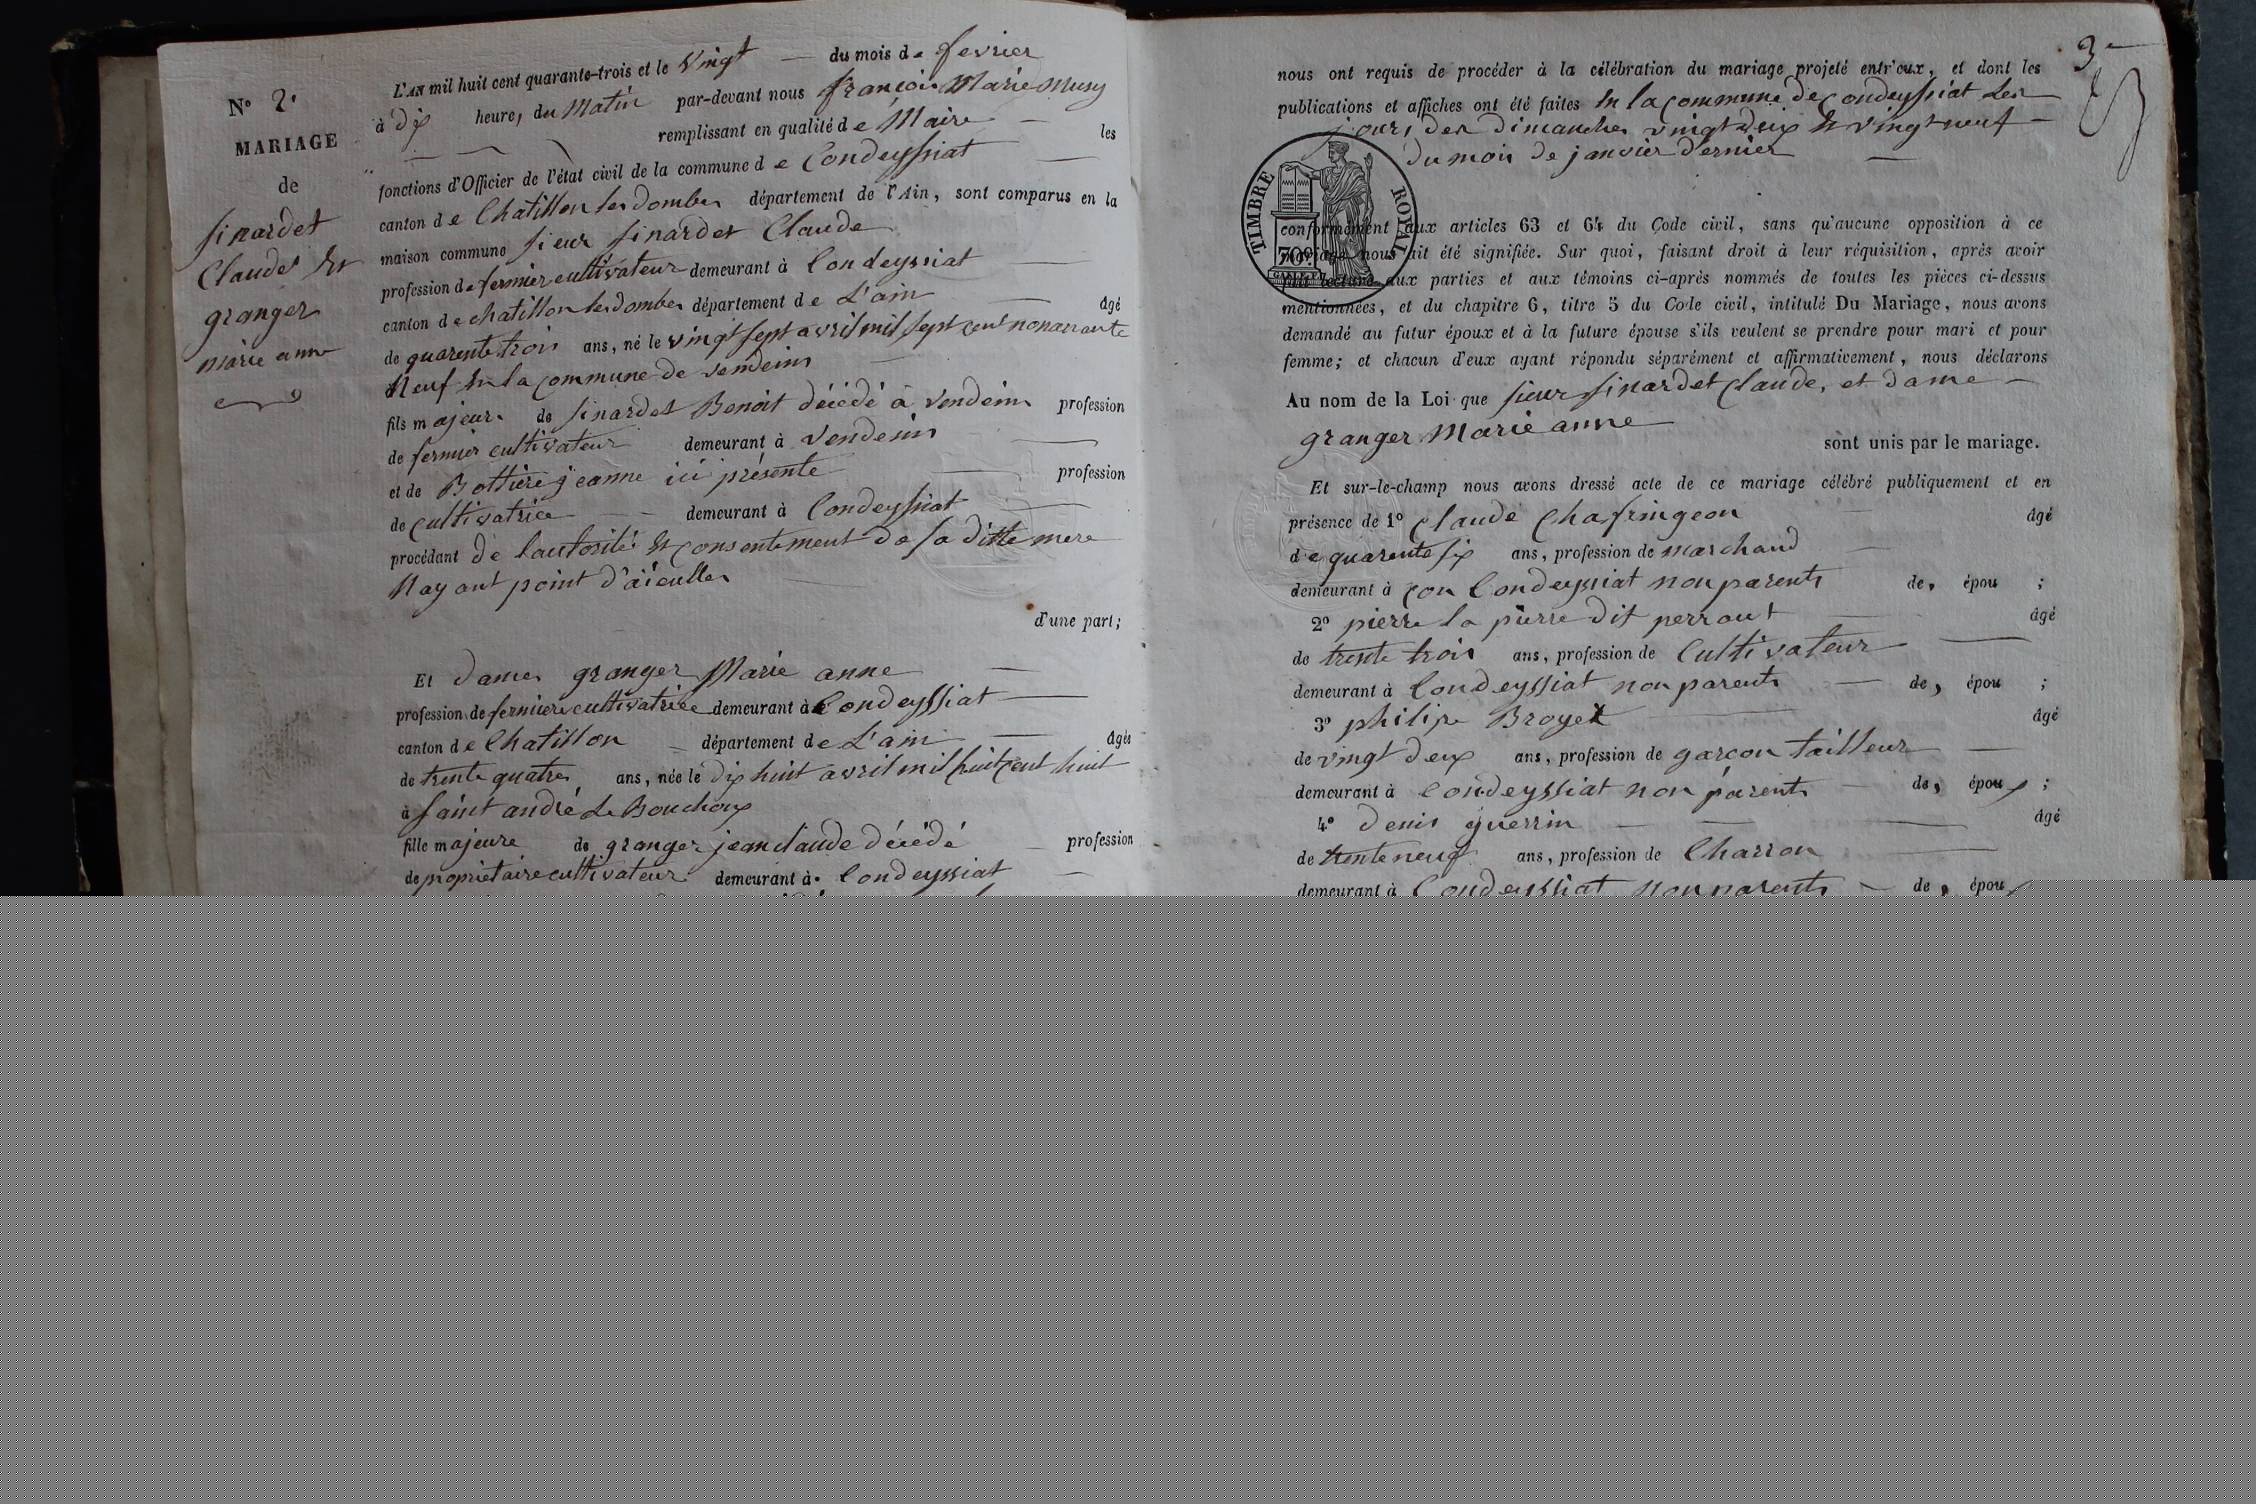 N° 2.
MARIAGE
de
finardet
Claude et
granger
marie anne
L'AN mil huit cent quarante-trois et le vingt du mois de fevrier
à dix heures du Matin par-devant nous françois Marie Musy
remplissant en qualité de Maire les
fonctions d'Officier de l'état civil de la commune de Condeyssiat
canton de Chatillon les dombes département de l'Ain, sont comparus en la
maison commune sieur finardet Claude
profession de fermier cultivateur demeurant à Condeyssiat
canton de chatillon les dombes département de L'ain âgé
de quarente trois ans, né le vingt sept avril mil sept cent nonanante
Neuf en la commune de vendeins
fils majeur de finardet Benoit décédé à vendeins profession
de fermier cultivateur demeurant à vendeins
et de Bottiere jeanne ici présente profession
de cultivatrice demeurant à Condeyssiat
procédant de lautorité et consentement de sa ditte mere
Nayant point d'aïeulles
d'une part;
Et dame granger Marie anne
profession de fermiere cultivatrice demeurant à Condeyssiat
canton de Chatillon département de L'ain âgés
de trente quatre ans, née le dix huit avril mil huit cent huit
à saint andré Le Bouchoux
fille majeure de granger jean claude décédé profession
de proprietaire cultivateur demeurant à Condeyssiat
3
nous ont requis de procéder à la célébration du mariage projeté entr'eux, et dont les
publications et affiches ont été faites en la commune de Condeyssiat Les
jours des dimanches vingt deux et vingt neuf
du mois de janvier dernier
TIMBRE ROYAL
70c.
conformément aux articles 63 et 64 du Code civil, sans qu'aucune opposition à ce
mariage nous ait été signifiée. Sur quoi, faisant droit à leur réquisition, après avoir
fait lecture aux parties et aux témoins ci-après nommés de toutes les pièces ci-dessus
mentionnées, et du chapitre 6, titre 5 du Code civil, intitulé Du Mariage, nous avons
demandé au futur époux et à la future épouse s'ils veulent se prendre pour mari et pour
femme; et chacun d'eux ayant répondu séparément et affirmativement, nous déclarons
Au nom de la Loi que sieur finardet Claude, et dame
granger Marie anne
sont unis par le mariage.
Et sur-le-champ nous avons dressé acte de ce mariage célébré publiquement et en
présence de 1° Claude Chafringeon âgé
de quarente six ans, profession de marchand
demeurant à con Condeyssiat non parents des épou ;
2° pierre la pierre dit perraut âgé
de trente trois ans, profession de Cultivateur
demeurant à Condeyssiat non parents des épou ;
3° philipe Broyet âgé
de vingt deux ans, profession de garçon tailleur
demeurant à Condeyssiat non parents des époux ;
4° denis guerrin âgé
de trente neuf ans, profession de Charron
demeurant à Condeyssiat non parents des époux